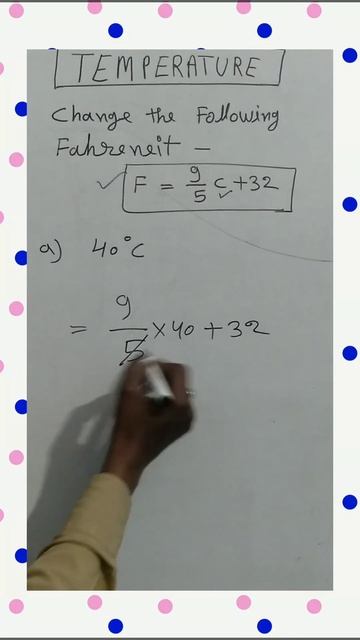 TEMPERATURE
Change the Following
Fahreneit -
F = 9/5 C + 32
a) 40°C
= 9/5 × 40 + 32